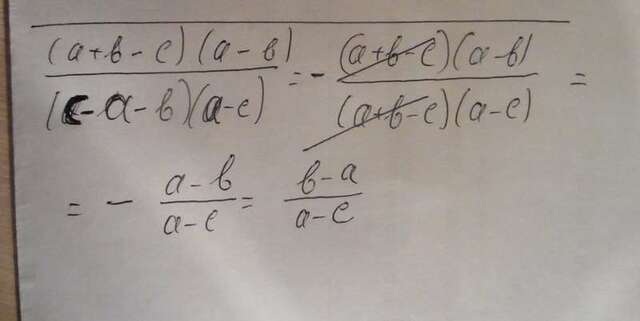 (a+b-c)(a-b)/(c-a-b)(a-c) = - (a+b-c)(a-b)/(a+b-c)(a-c) =
= - a-b/a-c = b-a/a-c